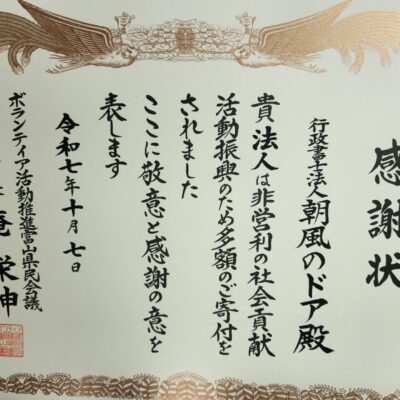 感謝状
行政書士法人 朝風のドア 殿
貴法人は非営利の社会貢献
活動振興のため多額のご寄付を
されました
ここに敬意と感謝の意を
表します
令和七年十月七日
ボランティア活動推進富山県民会議
栄伸